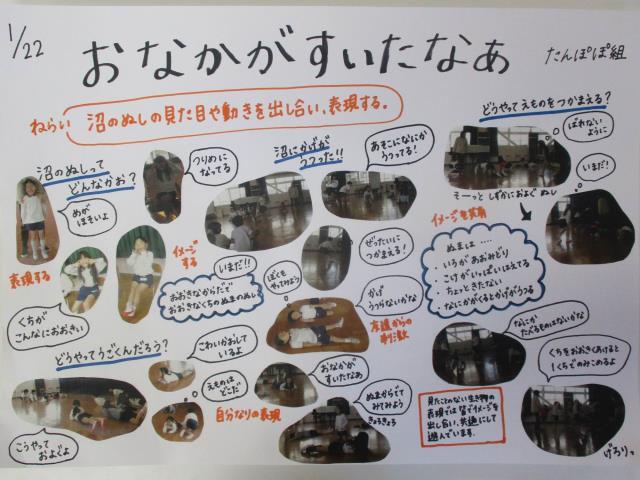 1/22
おなかがすいたなぁ
たんぽぽ組
ねらい 沼のぬしの見た目や動きを出し合い、表現する。
沼のぬしって
どんなかお?
つりめに
なってる
めが
ほそいよ
表現する
くちが
こんなにおおきい
イメージ
する
沼にかげが
うつった!!
あそこになにか
うつってる!
いまだ!!
おおきなからだで
おおきなくちの ぬまのぬし
ぜったいに
つかまえる!
ぼくも
やってみよう
かげ
うつらないかな
友達からの
刺激
どうやってえものをつかまえる?
ばれない
ように
そーっと しずかにおよぐ ぬし
いまだ!
イメージを共有
ぬまは……
・いろが あおみどり
・こけが いっぱいはえてる
・ちょっときたない
・なにかがくるとかげがうつる
どうやってうごくんだろう?
こわいかおして
いるよ
えものは
どこだ
こうやって
およぐよ
自分なりの表現
おなかが
すいたなあ
ぬまからでて
みてみよう
きょろきょろ
なにか
たべるものはないかな
くちをおおきくあけると
1くちでのみこめるよ
見たことのない生き物の
表現では皆でイメージを
出し合い、共通にして
遊んでいます。
げろりっ